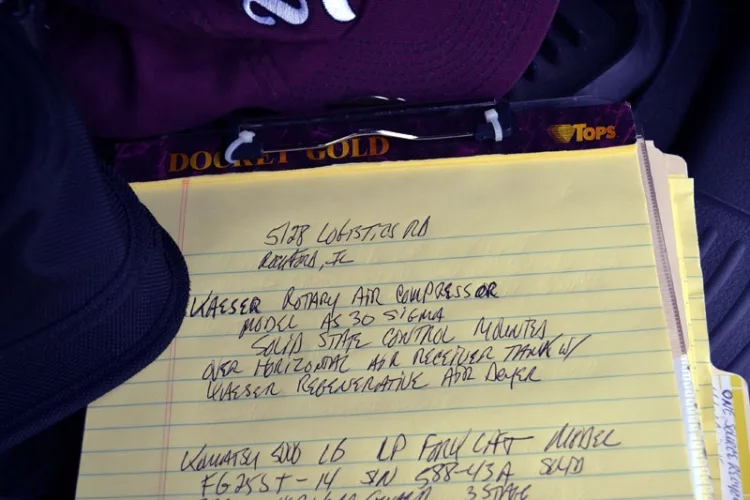 DOCKET GOLD
TOPS
5128 LOGISTICS RD
ROCKFORD, IL
KAESER ROTARY AIR COMPRESSOR
MODEL AS 30 SIGMA
SOLID STATE CONTROL MOUNTED
OVER HORIZONTAL AIR RECEIVER TANK W/
KAESER REGENERATIVE AIR DRYER
KOMATSU 5000 LB LP FORK LIFT MODEL
FG25ST-14 SN 588-43A
3 STAGE
ONE SOURCE